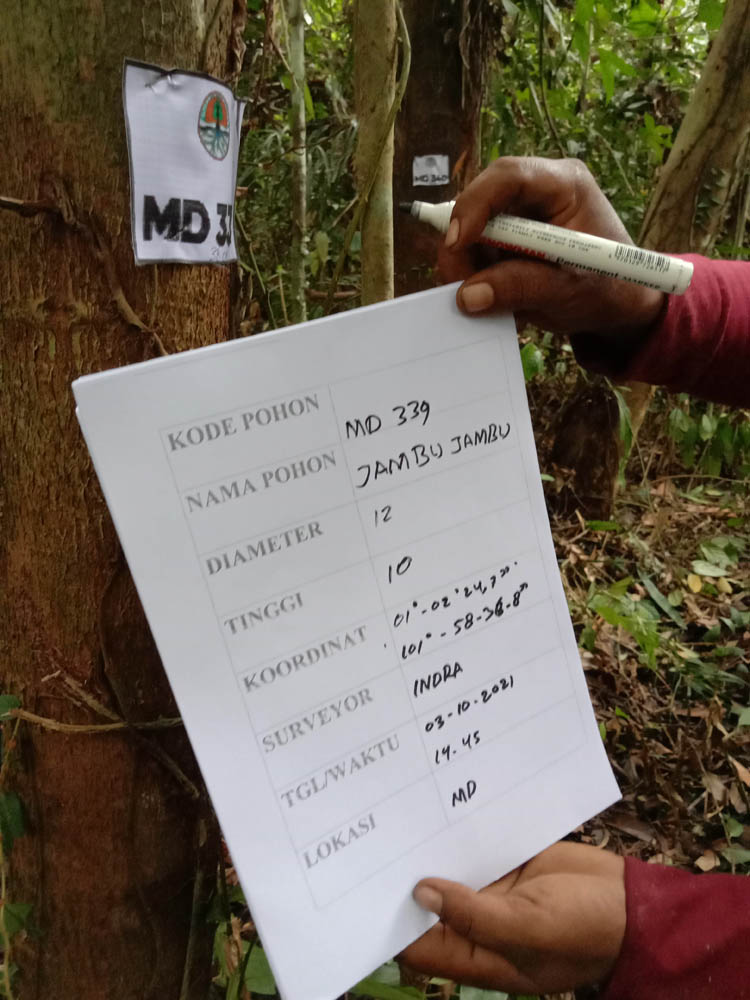 MD 33
MD 340
SNOWMAN Permanent MARKER
KODE POHON MD 339
NAMA POHON JAMBU JAMBU
DIAMETER 12
TINGGI 10
KOORDINAT 01° - 02' 24,7"
101° - 58 - 36 - 8"
SURVEYOR INDRA
TGL/WAKTU 03-10-2021
14.45
LOKASI MD